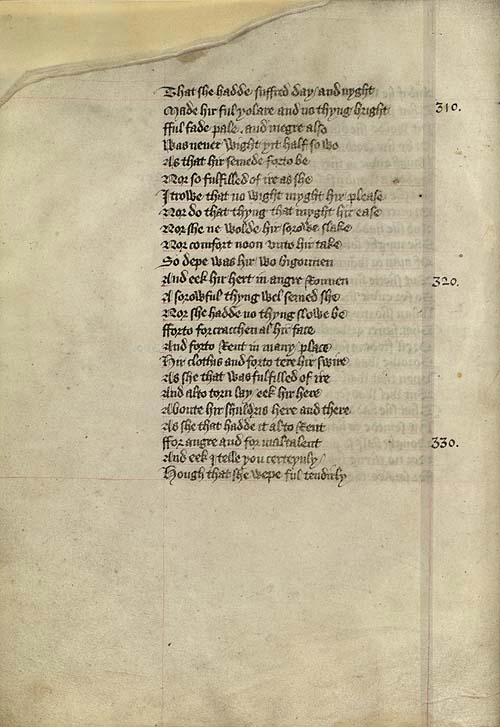 That she hadde suffred day / and nyght
Made hir ful yolare and no thyng bright 310.
fful fade pale . and megre also
Was neuer wight yit half so wo
As that hir semede forto be
Nor so fulfilled of ire as she
I trowe that no wight myght hir please
Nor do that thyng that myght hir ease
Nor she ne wolde hir sorowe slake
Nor comfort noon vnto hir take
So depe was hir wo bigonnen
And eek hir hert in angre Ronnen 320.
A sorowful thyng wel semed she
Nor she hadde no thyng slowe be
fforto forcracchen al hir face
And forto Rent in many place
Hir clothis and forto tere hir swire
As she that was fulfilled of ire
And al to torn lay eek hir here
Aboute hir shuldris here and there
As she that hadde it al to Rent
ffor angre and for maltalent 330.
And eek I telle you certeynly /
Hough that she wepe ful tendirly